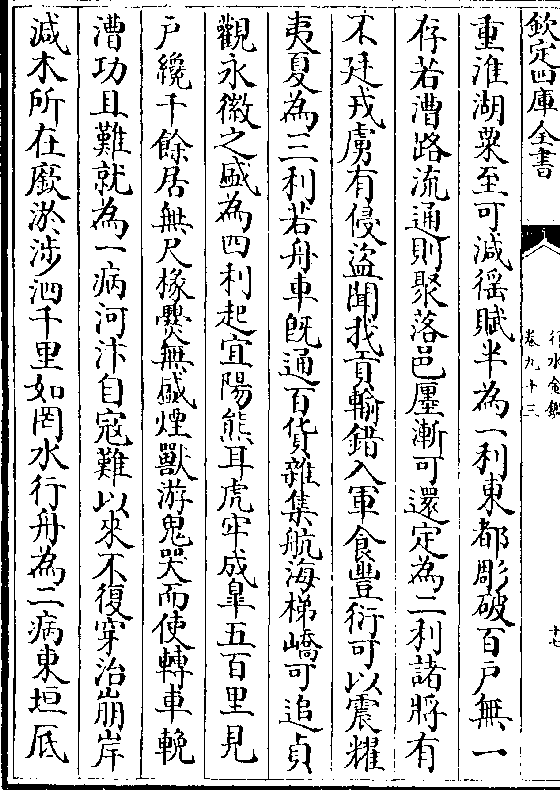 欽定四庫全書
行水金鑑
卷九十三
重淮湖粟至可減徭賦半為一利東都彫破百戶無一
存若漕路流通則聚落邑廛漸可還定為二利諸將有
不廷戎虜有侵盜聞我貢輸錯入軍食豐衍可以震耀
夷夏為三利若舟車旣通百貨雜集航海梯嶠可追貞
觀永徽之盛為四利起宜陽熊耳虎牢成臯五百里見
戶纔千餘居無尺椽爨無盛煙獸游鬼哭而使轉車輓
漕功且難就為一病河汴自寇難以來不復穿治崩岸
減木所在廞淤涉泗千里如罔水行舟為二病東垣底